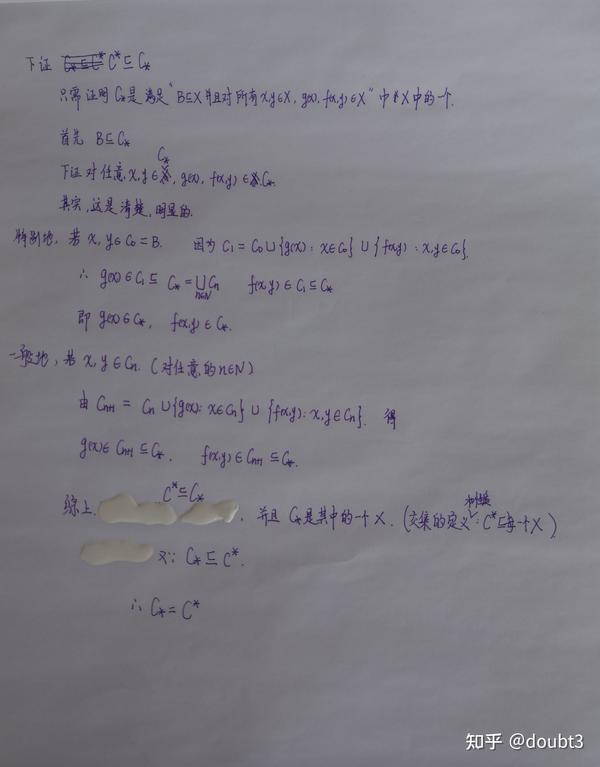 下证 C* ⊆ C⁎
只需证明 C⁎是满足"B⊆X并且对所有x,y∈X, g(x), f(x,y)∈X"中X中的一个.
首先 B⊆C⁎
下证对任意x,y∈C⁎, g(x), f(x,y)∈C⁎.
其实,这是清楚,明显的.
特别地, 若 x,y∈C₀=B. 因为 C₁ = C₀∪{g(x): x∈C₀} ∪ {f(x,y): x,y∈C₀}.
∴ g(x)∈C₁⊆ C⁎ = ⋃n∈N Cn f(x,y)∈C₁⊆C⁎
即 g(x)∈C⁎, f(x,y)∈C⁎.
一般地, 若 x,y∈Cn. (对任意的n∈N)
由 Cn+1 = Cn∪{g(x): x∈Cn} ∪ {f(x,y): x,y∈Cn}. 得
g(x)∈Cn+1⊆C⁎, f(x,y)∈Cn+1⊆C⁎.
综上, C*⊆C⁎, 并且 C⁎是其中的一个X. (交集的定义: C*⊆每一个X)
又∵ C⁎⊆C*.
∴ C⁎=C*
知乎 @doubt3